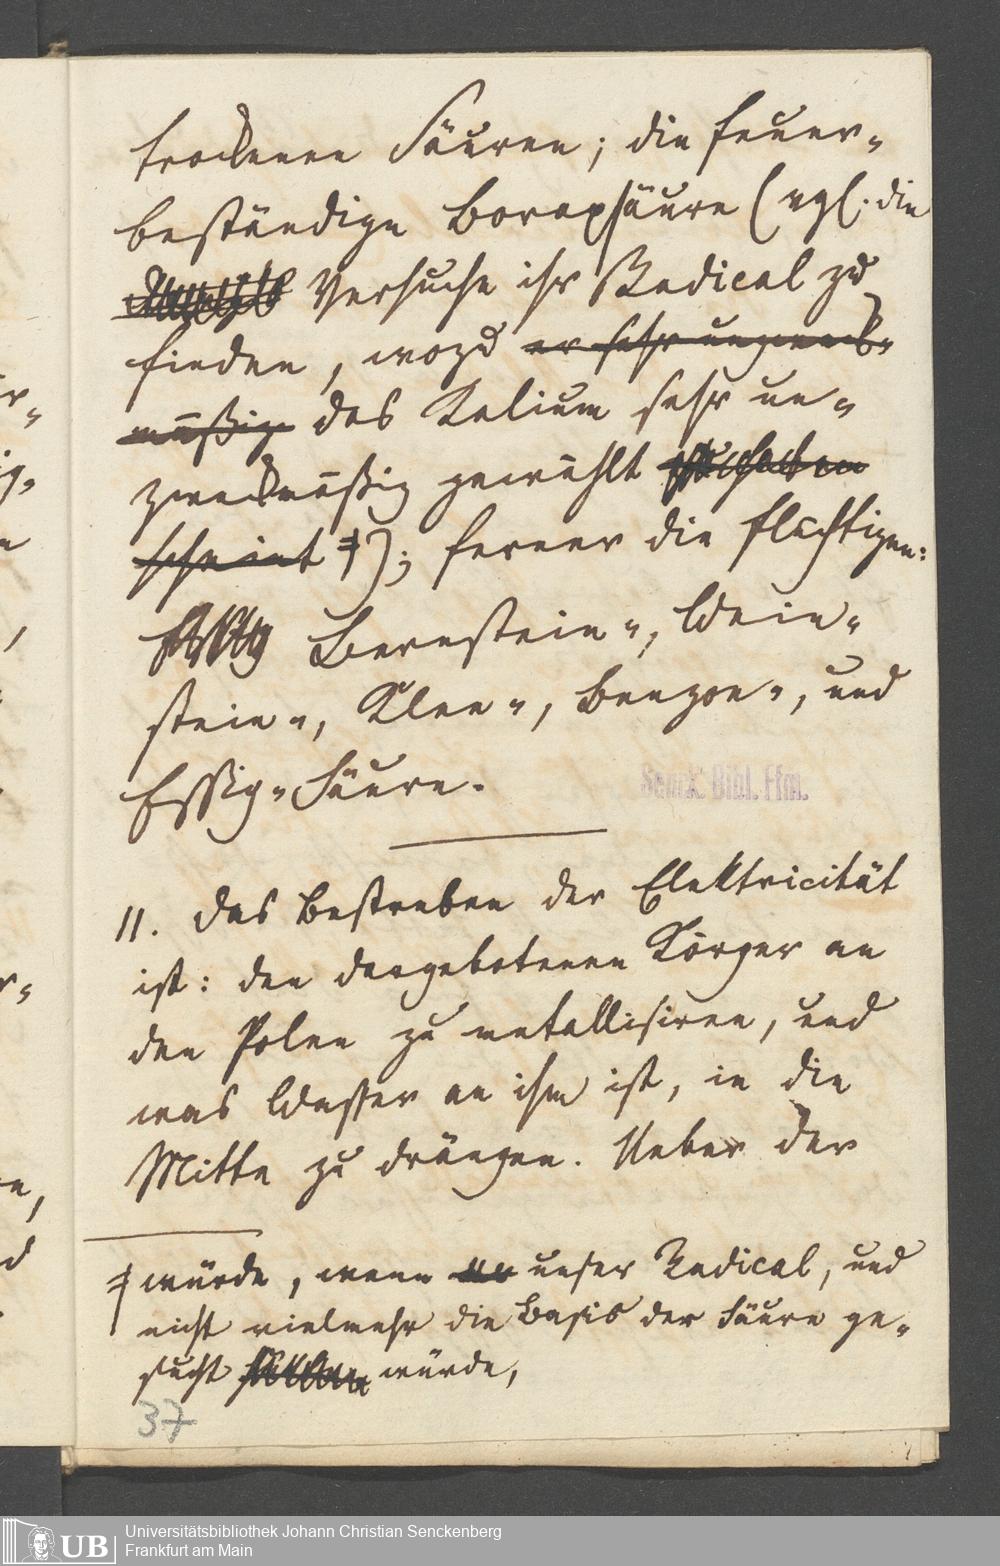 trockenen Säuren; die feuer-
beständige Boraxsäure (vgl. die
Versuche ihr Radical zu
finden, wozu er sehr unzweck-
mäßig das Kalium sehr un-
zweckmäßig gewählt
scheint ǂ); ferner die flüchtigen:
Bernstein-, Wein-
stein-, Klee-, Benzoe-, und
Essig-Säure.
Senck. Bibl. Ffm.
11. Das Bestreben der Elektricität
ist: den dargebotenen Körper an
den Polen zu metallisiren, und
was Wasser an ihm ist, in die
Mitte zu drängen. Ueber der
ǂ würde, wenn unser Radical, und
nicht vielmehr die Basis der Säure ge-
sucht würde,
37
UB
Universitätsbibliothek Johann Christian Senckenberg
Frankfurt am Main